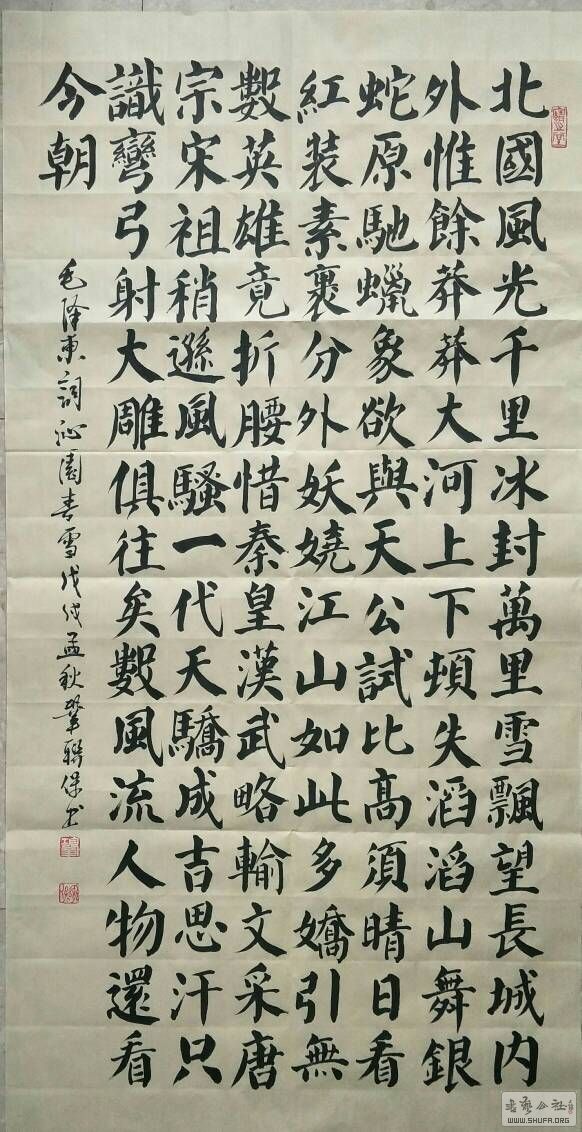 北國風光千里冰封萬里雪飄望長城内
外惟餘莽莽大河上下頓失滔滔山舞銀
蛇原馳蠟象欲與天公試比髙須晴日看
紅装素裹分外妖嬈江山如此多嬌引無
數英雄竟折腰惜秦皇漢武略輸文采唐
宗宋祖稍遜風騷一代天驕成吉思汗只
識彎弓射大雕俱往矣數風流人物還看
今朝
毛澤東詞沁園春雪戊戌孟秋鞏聯保书
WWW.SHUFA.ORG